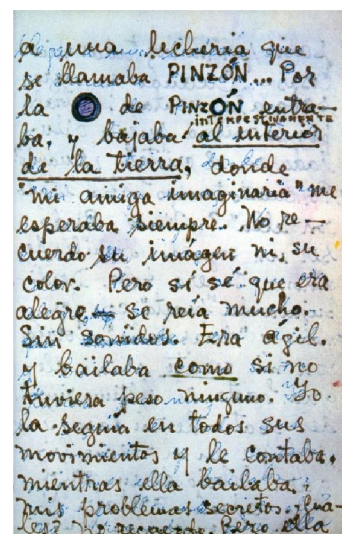 a una lechería que
se llamaba PINZÓN... Por
la O de PINZÓN entra-
ba, y bajaba intempestivamente al interior
de la tierra, donde
"mi amiga imaginaria" me
esperaba siempre. No re-
cuerdo su imágen ni su
color. Pero sí sé que era
alegre - se reía mucho.
Sin sonidos. Era ágil.
y bailaba como si no
tuviera peso ninguno. Yo
la seguía en todos sus
movimientos y le contaba,
mientras ella bailaba,
mis problemas secretos. Cuá-
les? No recuerdo. Pero ella